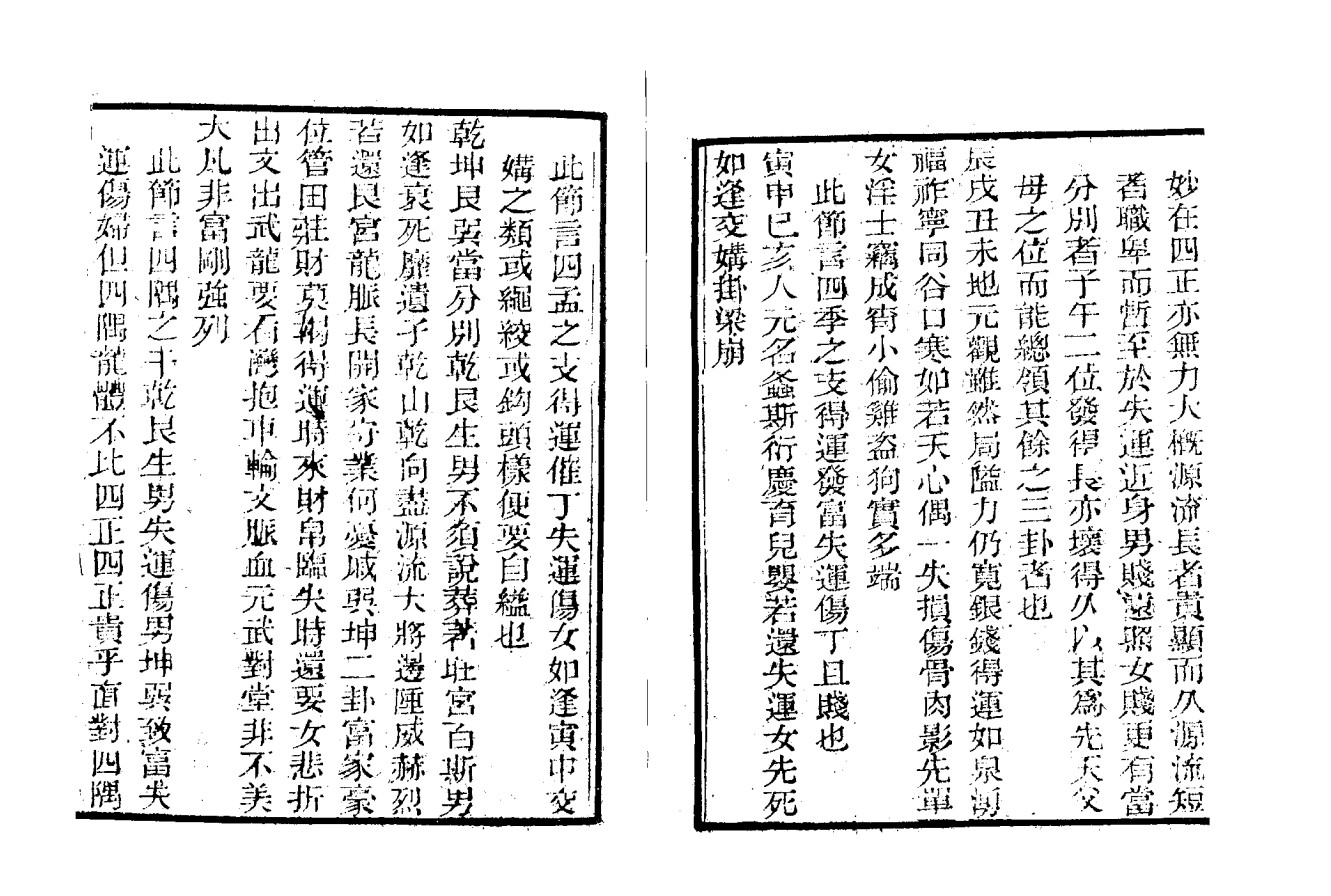 妙在四正亦無力大概源流長者貴顯而久源流短
者職卑而暫至於失運近身男賤遠照女賤更有當
分別者子午二位發得長亦壞得久以其爲先天父
母之位而能總領其餘之三卦者也
辰戌丑未地元觀雖然局隘力仍寬銀錢得運如泉湧
福祚寧同谷口寒如若天心偶一失損傷骨肉影先單
女淫士竊成宵小偷雞盜狗實多端
此節言四季之支得運發富失運傷丁且賤也
寅申巳亥人元名螽斯衍慶育兒嬰若還失運女先死
如逢交媾掛梁崩
此節言四孟之支得運催丁失運傷女如逢寅申交
媾之類或繩絞或鈎頭樣便要自縊也
乾坤艮巽當分別乾艮生男不須說葬若壯宮百斯男
如逢衰死靡遺子乾山乾向盡源流大將邊陲威赫烈
若還艮宮龍脈長開家好業何憂域巽坤二卦富家豪
位管田莊財莫竭得運時來財帛臨失時還要女悲折
出文出武龍要石灣抱車輪支脈血元武對堂非不美
大凡非富剛強列
此節言四隅之干乾艮生男失運傷男坤巽致富失
運傷婦但四隅龍體不比四正四正貴乎直對四隅